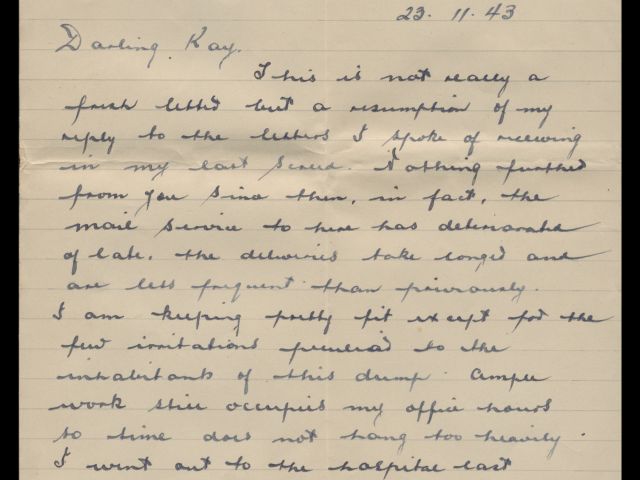 23. 11. 43
Darling Kay.
This is not really a
fresh letter but a resumption of my
reply to the letters I spoke of receiving
in my last screed. Nothing further
from you since then, in fact, the
mail service to here has deteriorated
of late. the deliveries take longer and
are less frequent than previously.
I am keeping pretty fit except for the
few irritations peculiar to the
inhabitants of this dump. Ample
work still occupies my office hours
so time does not hang too heavily.
I went out to the hospital last